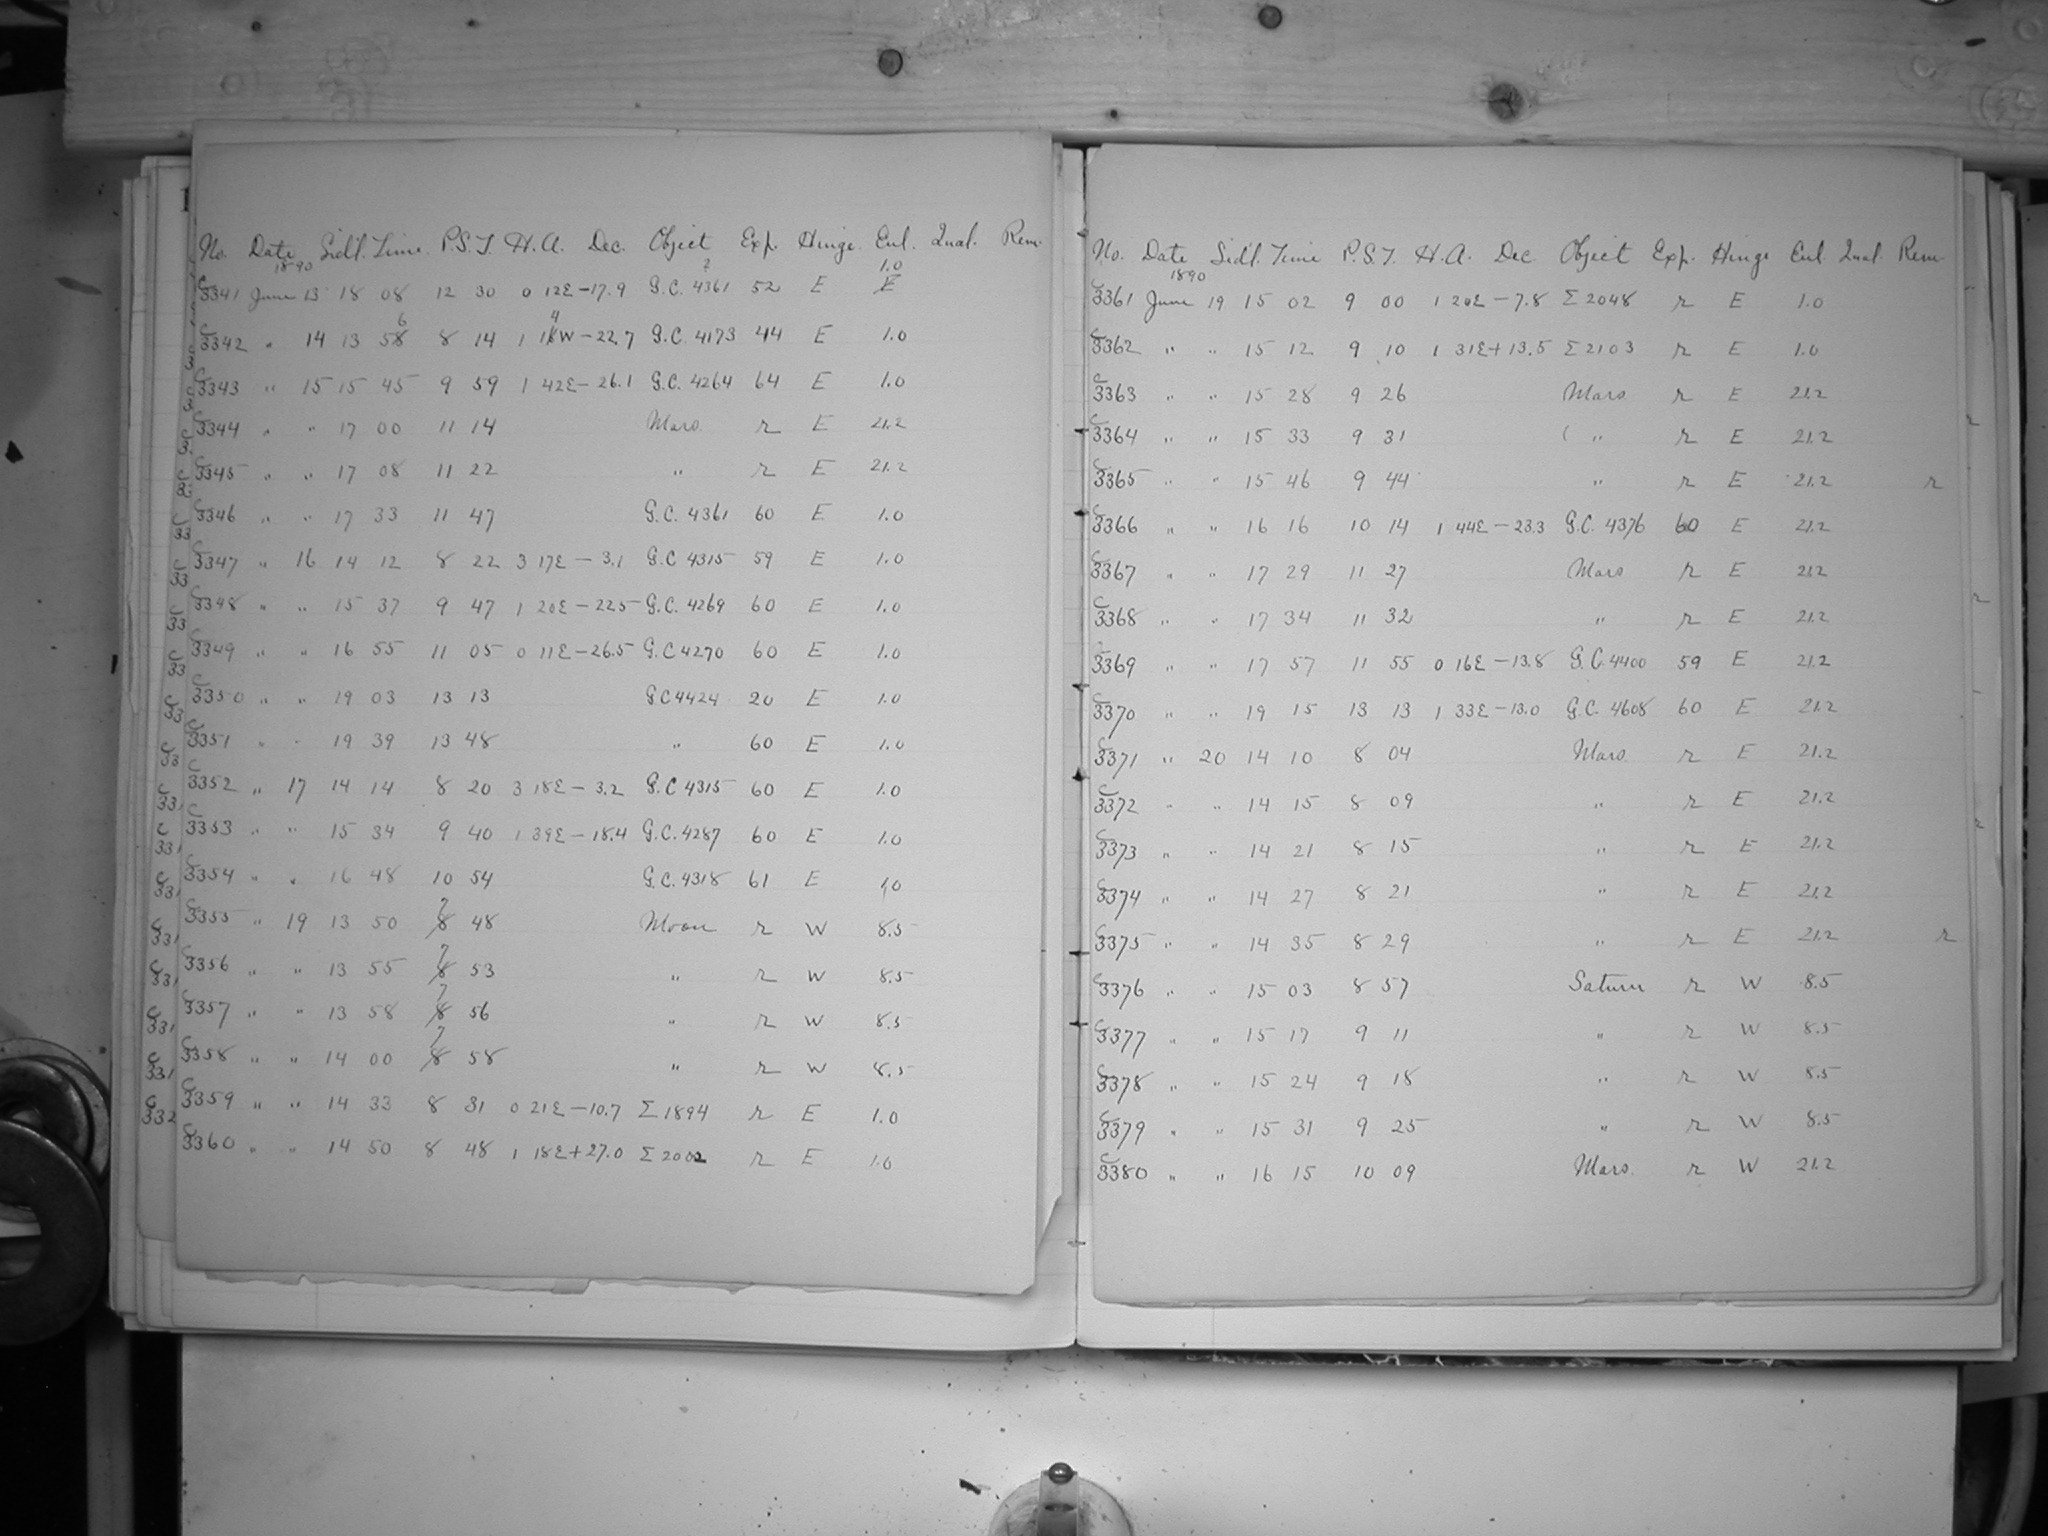 No. Date Sid'l. Time. P.S.T. H.A. Dec. Object Exp. Hinge. Enl. Qual. Rem.
1890 ? 1.0
C3341 June 13 18 08 12 30 0 12E -17.9 G.C. 4361 52 E E
6 4
C3342 " 14 13 58 8 14 1 1 W -22.7 G.C. 4173 44 E 1.0
C3343 " 15 15 45 9 59 1 42E -26.1 G.C. 4264 64 E 1.0
C3344 " " 17 00 11 14 Mars. r E 21.2
C3345 " " 17 08 11 22 " r E 21.2
C3346 " " 17 33 11 47 G.C. 4361 60 E 1.0
C3347 " 16 14 12 8 22 3 17E -3.1 G.C 4315 59 E 1.0
C3348 " " 15 37 9 47 1 20E -22.5 G.C. 4269 60 E 1.0
C3349 " " 16 55 11 05 0 11E -26.5 G.C 4270 60 E 1.0
C3350 " " 19 03 13 13 GC 4424 20 E 1.0
C3351 " " 19 39 13 48 " 60 E 1.0
C3352 " 17 14 14 8 20 3 18E -3.2 G.C 4315 60 E 1.0
C3353 " " 15 34 9 40 1 39E -18.4 G.C. 4287 60 E 1.0
C3354 " " 16 48 10 54 G.C. 4318 61 E 1.0
7
C3355 " 19 13 50 8 48 Moon r W 8.5
7
C3356 " " 13 55 8 53 " r W 8.5
7
C3357 " " 13 58 8 56 " r W 8.5
7
C3358 " " 14 00 8 58 " r W 8.5
C3359 " " 14 33 8 31 0 21E -10.7 Σ 1894 r E 1.0
C3360 " " 14 50 8 48 1 18E +27.0 Σ 2002 r E 1.0
No. Date Sid'l. Time P.S.T. H.A. Dec. Object Exp. Hinge Enl. Qual. Rem.
1890
C3361 June 19 15 02 9 00 1 20E -7.8 Σ 2048 r E 1.0
C3362 " " 15 12 9 10 1 31E +13.5 Σ 2103 r E 1.0
C3363 " " 15 28 9 26 Mars r E 21.2
C3364 " " 15 33 9 31 " r E 21.2
C3365 " " 15 46 9 44 " r E 21.2 r
C3366 " " 16 16 10 14 1 44E -23.3 G.C. 4376 60 E 21.2
C3367 " " 17 29 11 27 Mars r E 21.2
C3368 " " 17 34 11 32 " r E 21.2
C3369 " " 17 57 11 55 0 16E -13.8 G.C. 4400 59 E 21.2
C3370 " " 19 15 13 13 1 33E -13.0 G.C. 4608 60 E 21.2
C3371 " 20 14 10 8 04 Mars. r E 21.2
C3372 " " 14 15 8 09 " r E 21.2
C3373 " " 14 21 8 15 " r E 21.2
C3374 " " 14 27 8 21 " r E 21.2
C3375 " " 14 35 8 29 " r E 21.2 r
C3376 " " 15 03 8 57 Saturn r W 8.5
C3377 " " 15 17 9 11 " r W 8.5
C3378 " " 15 24 9 18 " r W 8.5
C3379 " " 15 31 9 25 " r W 8.5
C3380 " " 16 15 10 09 Mars. r W 21.2